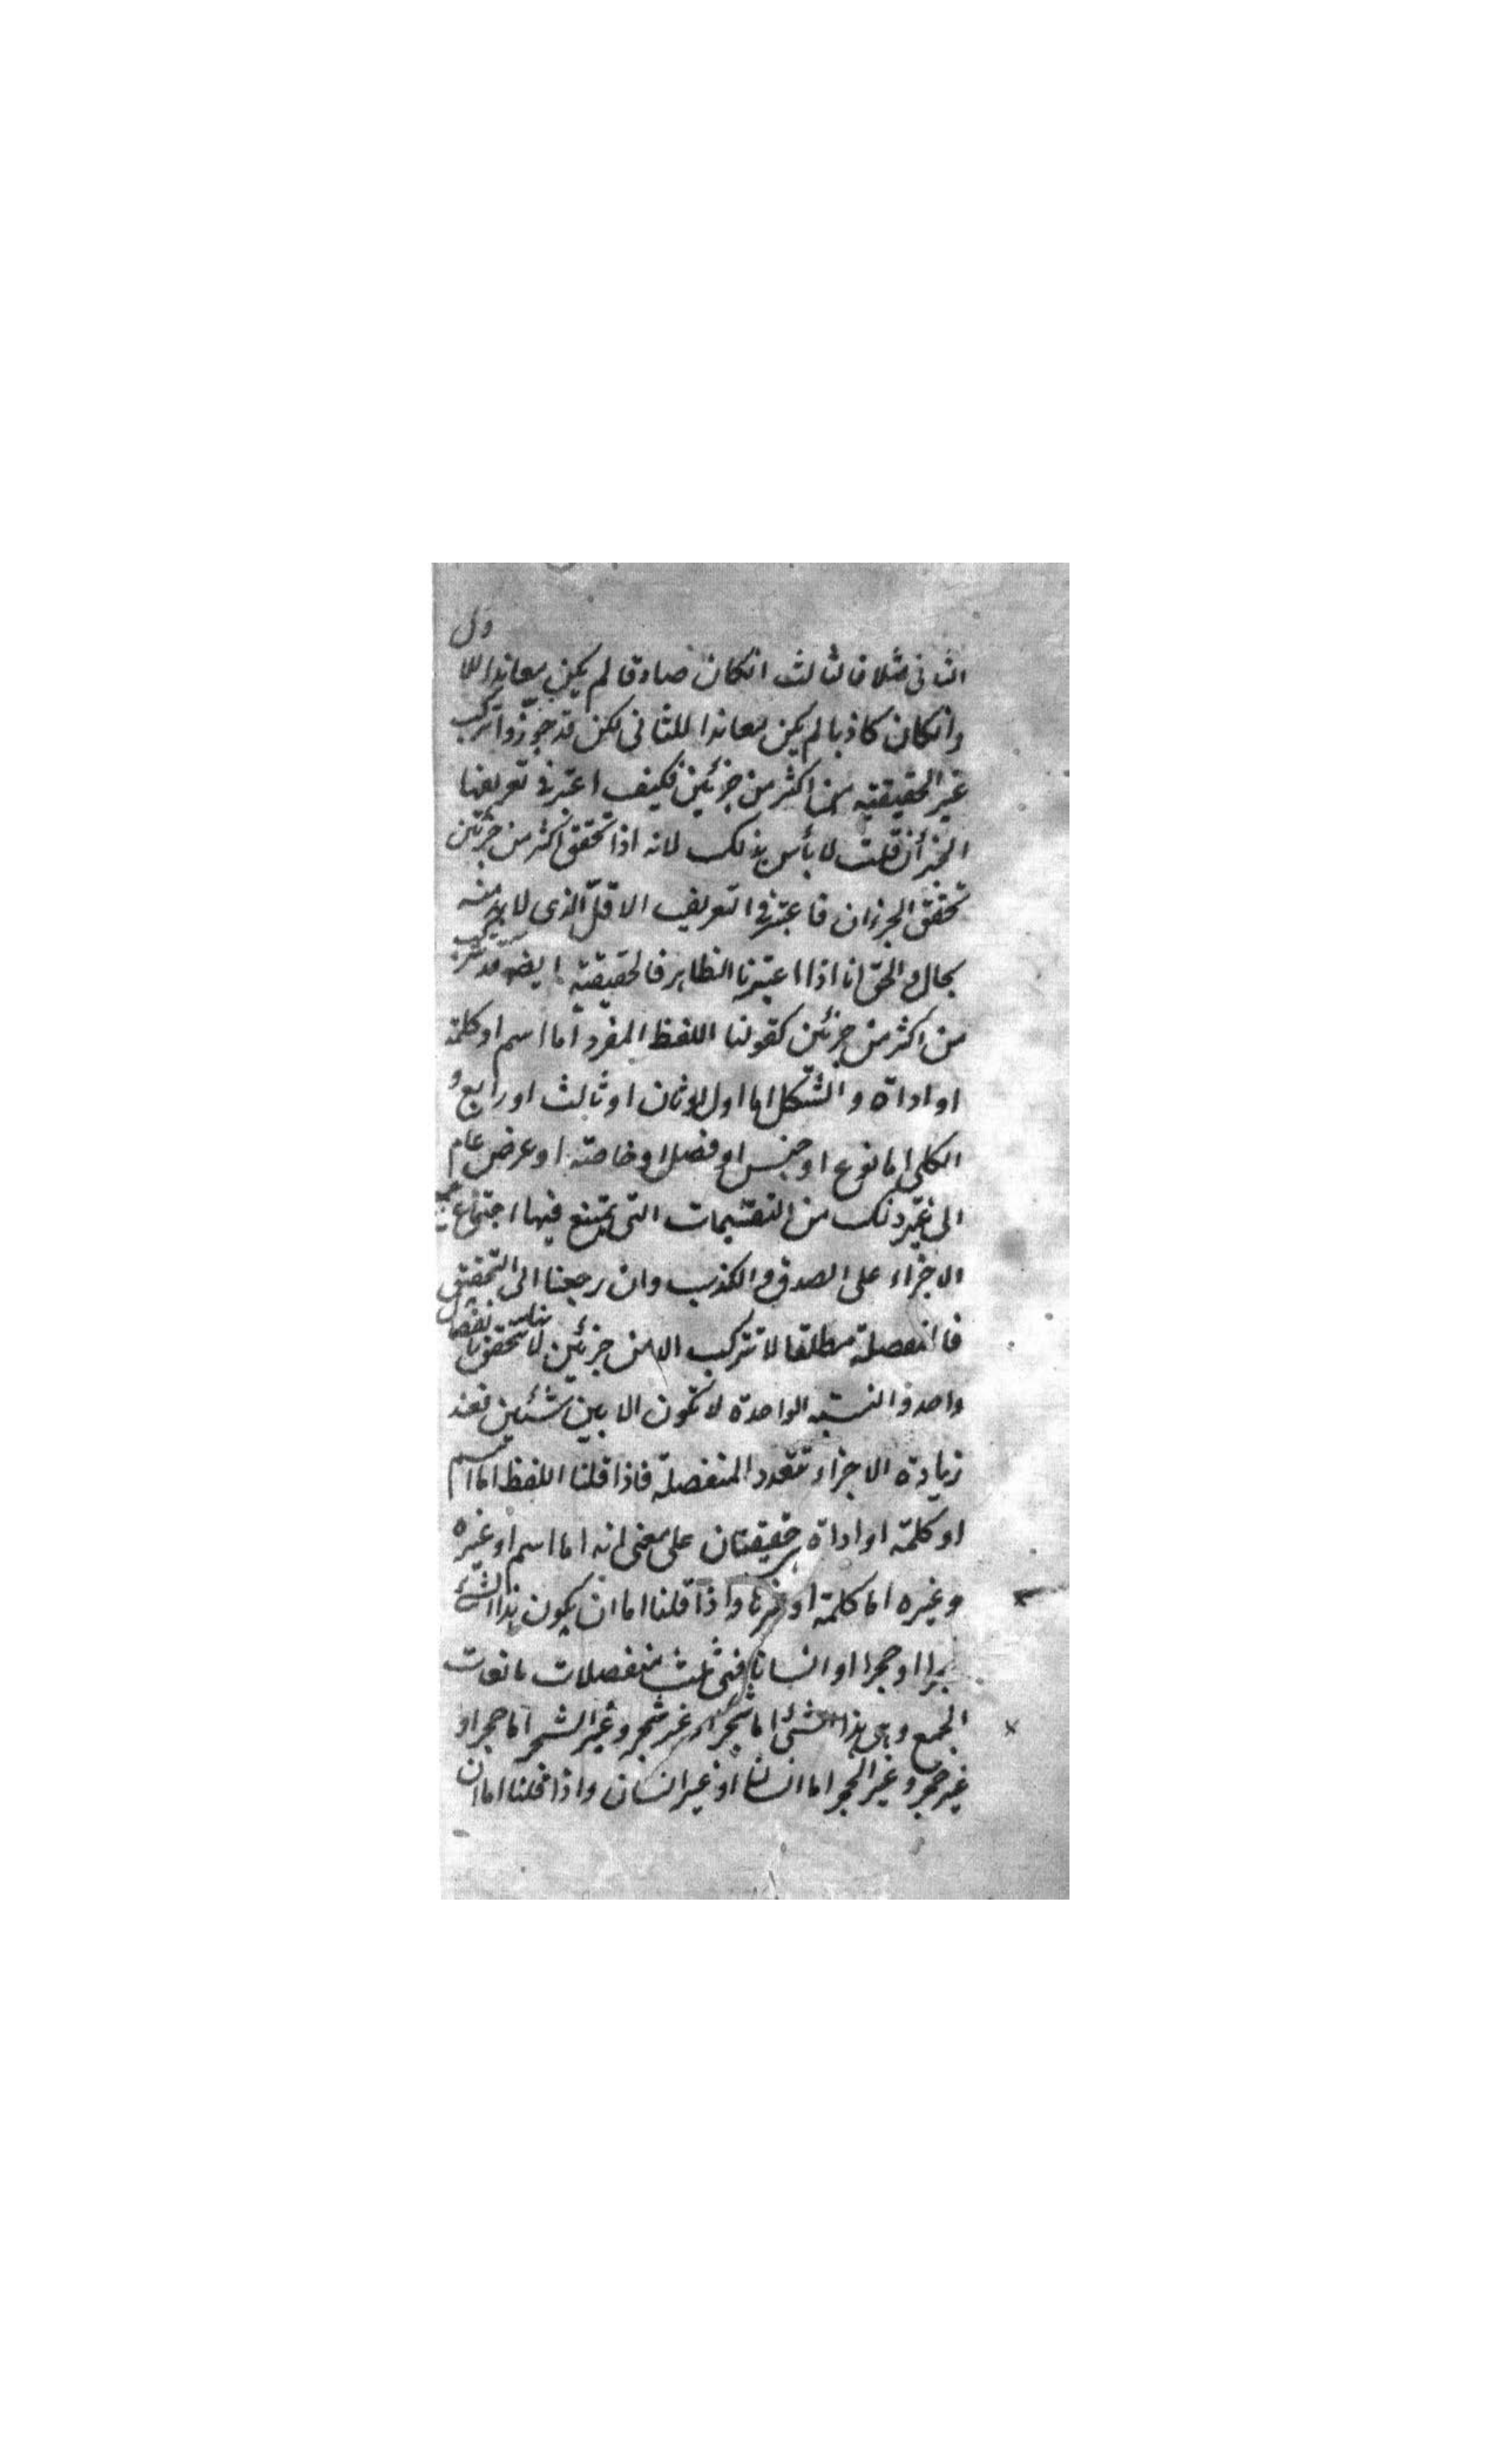 الثانى مثلا فالثالث انكان صادقا لم يكن معاندا للاول
وانكان كاذبا لم يكن معاندا للثانى لكن قد جوزوا تركب
غير الحقيقية من اكثر من جزئين فكيف اعتبر فى تعريفها
الجزأن قلت لا بأس بذلك لانه اذا تحقق اكثر من جزئين
تحقق الجزءان فاعتبر فى التعريف الاقل الذى لا بد منه
بحال والحق انا اذا اعتبرنا الظاهر فالحقيقية ايضا قد تتركب
من اكثر من جزئين كقولنا اللفظ المفرد اما اسم او كلمة
او اداة والشكل اما اول او ثان او ثالث او رابع و
الكلى اما نوع او جنس او فصل او خاصة او عرض عام
الى غير ذلك من التقسيمات التى يمتنع فيها اجتماع جميع
الاجزاء على الصدق والكذب وان رجعنا الى التحقيق
فالمنفصلة مطلقا لا تتركب الا من جزئين لانها تتحقق بانفصال
واحد والنسبة الواحدة لا تكون الا بين شئين فعند
زيادة الاجزاء تتعدد المنفصلة فاذا قلنا اللفظ اما اسم
او كلمة او اداة فهو حقيقتان على معنى انه اما اسم او غيره
وغيره اما كلمة او غيرها واذا قلنا اما ان يكون هذا الشئ
شجرا او حجرا او انسانا فهى ثلث منفصلات مانعات
الجمع وهى هذا الشئ اما شجر او غير شجر وغير الشجر اما حجر او
غير حجر وغير الحجر اما انسان او غير انسان واذا قلنا اما ان